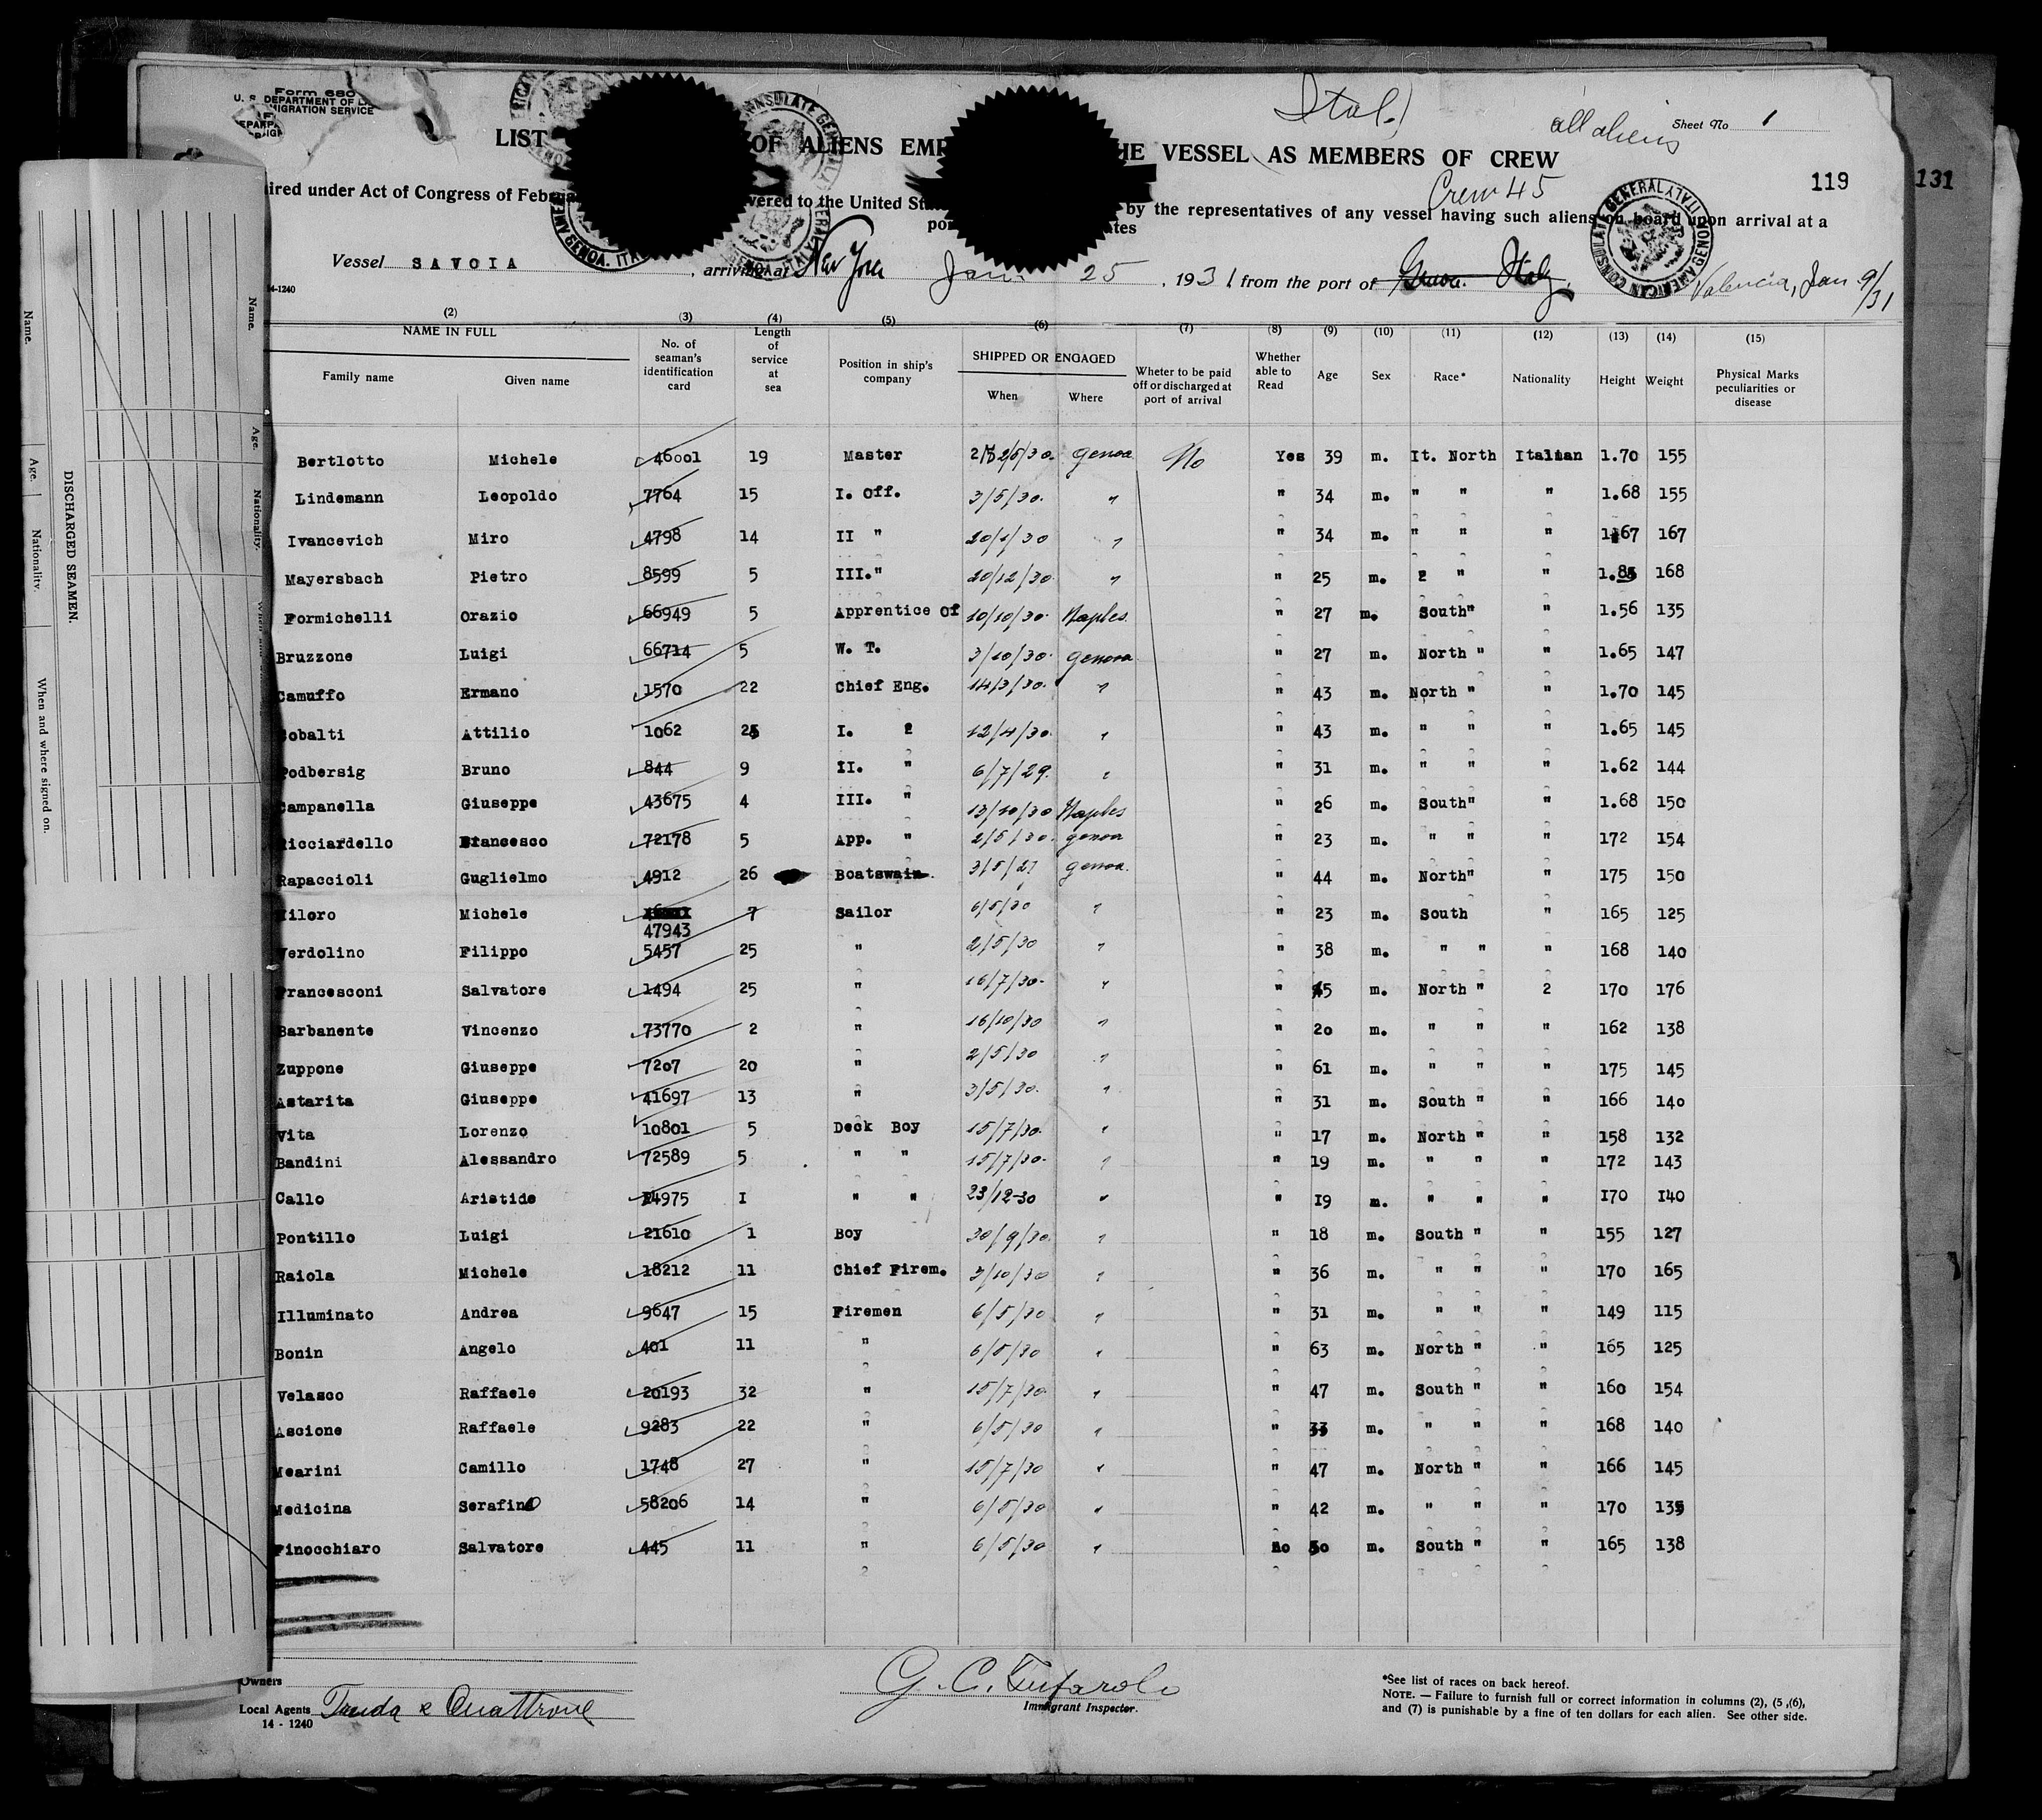 Form 680
U. S. DEPARTMENT OF
IMMIGRATION SERVICE
Ital.
all aliens
Sheet No 1
LIST OF ALIENS EMP HE VESSEL AS MEMBERS OF CREW
Crew 45
119 131
ired under Act of Congress of vered to the United by the representatives of any vessel having such aliens on board upon arrival at a
AMERICAN CONSULATE GENERAL GENOA, ITALY
Vessel SAVOIA, arriving at New York Jan. 25, 1931 from the port of Genoa. Italy. Valencia, Jan 9/31
14-1240
(2) (3) (4) (5) (6) (7) (8) (9) (10) (11) (12) (13) (14) (15)
NAME IN FULL
Family name Given name No. of seaman's identification card Length of service at sea Position in ship's company SHIPPED OR ENGAGED When Where Wheter to be paid off or discharged at port of arrival Whether able to Read Age Sex Race* Nationality Height Weight Physical Marks peculiarities or disease
Bertlotto Michele 46001 19 Master Genoa No Yes 39 m. It. North Italian 1.70 155
Lindemann Leopoldo 7764 15 I. Off. 3/5/30. " " 34 m. " " " 1.68 155
Ivancevich Miro 4798 14 II " 20/1/30 " " 34 m. " " " 1.67 167
Mayersbach Pietro 8599 5 III." 20/12/30. " " 25 m. 2 " " 168
Formichelli Orazio 66949 5 Apprentice Of 10/10/30. Naples. " 27 m. South" " 1.56 135
Bruzzone Luigi 66714 5 W. T. 3/10/30. Genova " 27 m. North " " 1.65 147
Camuffo Ermano 1570 22 Chief Eng. 14/3/30. " " 43 m. North " " 1.70 145
obalti Attilio 1062 25 I. 2 12/4/30. " " 43 m. " " " 1.65 145
Podbersig Bruno 844 9 II. " 6/7/29. " " 31 m. " " " 1.62 144
Campanella Giuseppe 43675 4 III. " 13/10/30 Naples " 26 m. South" " 1.68 150
Ricciardello Francesco 72178 5 App. " 2/5/30. genoa " 23 m. " " " 172 154
Rapaccioli Guglielmo 4912 26 Boatswain. 3/5/27 genoa. " 44 m. North" " 175 150
iloro Michele 47943 7 Sailor 6/5/30 " " 23 m. South " 165 125
Verdolino Filippo 5457 25 " 2/5/30 " " 38 m. " " " 168 140
Francesconi Salvatore 1494 25 " 16/7/30. " " 45 m. North " 2 170 176
Barbanente Vincenzo 73770 2 " 16/10/30 " " 20 m. " " " 162 138
Zuppone Giuseppe 7207 20 " 2/5/30 " " 61 m. " " " 175 145
Astarita Giuseppe 41697 13 " 3/5/30. " " 31 m. South " " 166 140
Vita Lorenzo 10801 5 Deck Boy 15/7/30. " " 17 m. North " " 158 132
Bandini Alessandro 72589 5 " " 15/7/30. " " 19 m. " " " 172 143
Callo Aristide 4975 I " " 23/12-30 " " I9 m. " " " I70 I40
Pontillo Luigi 21610 1 Boy 30/9/30. " " 18 m. South " " 155 127
Raiola Michele 18212 11 Chief Firem. 3/10/30 " " 36 m. " " " 170 165
Illuminato Andrea 9647 15 Firemen 6/5/30 " " 31 m. " " " 149 115
Bonin Angelo 401 11 " 6/5/30 " " 63 m. North " " 165 125
Velasco Raffaele 20193 32 " 15/7/30. " " 47 m. South " " 160 154
Ascione Raffaele 9283 22 " 6/5/30 " " 33 m. " " " 168 140
Mearini Camillo 1748 27 " 15/7/30 " " 47 m. North " " 166 145
Medicina Serafino 58206 14 " 6/5/30 " " 42 m. " " " 170 135
Finocchiaro Salvatore 445 11 " 6/5/30 " no 50 m. South " " 165 138
Owners
Local Agents Truda & Quattrone
14 - 1240
G. C. Tufarolo
Immigrant Inspector.
*See list of races on back hereof.
NOTE. — Failure to furnish full or correct information in columns (2), (5,(6),
and (7) is punishable by a fine of ten dollars for each alien. See other side.
DISCHARGED SEAMEN.
Name. Age. Nationality. When and where signed on.
Name. Age. Nationality.